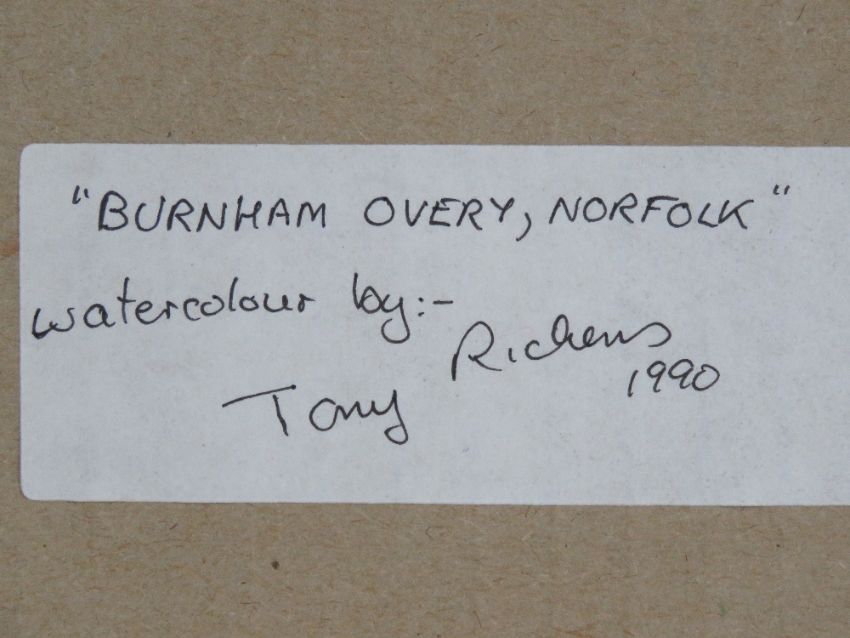 "BURNHAM OVERY, NORFOLK"
watercolour by:-
Tony Rickens
1990